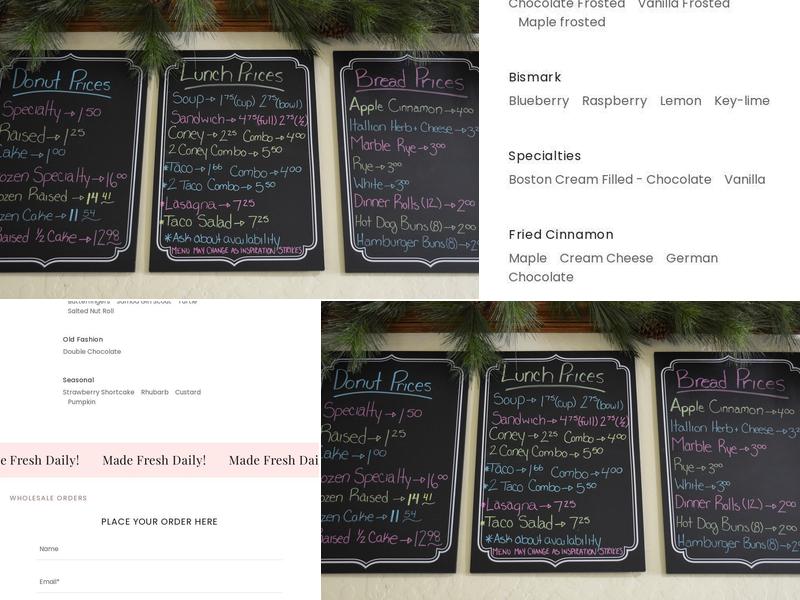 Donut Prices
Specialty → 1.50
Raised → 1 25
Cake → 1 00
ozen Specialty → 16 00
ozen Raised → 14 41
ozen Cake → 11 54
Raised ½ Cake → 12 98
Lunch Prices
Soup → 1 75 (cup) 2 75 (bowl)
Sandwich → 4 75 (full) 2 75 (½)
Coney → 2 25 Combo → 4 00
2 Coney Combo → 5 50
*Taco → 1 66 Combo → 4 00
*2 Taco Combo → 5 50
*Lasagna → 7 25
*Taco Salad → 7 25
*Ask about availability
MENU MAY CHANGE AS INSPIRATION STRIKES
Bread Prices
Apple Cinnamon → 4 00
Itallion Herb + Cheese → 3
Marble Rye → 3 00
Rye → 3 00
White → 3 00
Dinner Rolls (12) → 2 00
Hot Dog Buns (8) → 2 00
Hamburger Buns (8) → 2
Chocolate Frosted Vanilla Frosted
Maple frosted
Bismark
Blueberry Raspberry Lemon Key-lime
Specialties
Boston Cream Filled - Chocolate Vanilla
Fried Cinnamon
Maple Cream Cheese German
Chocolate
Butterfingers Samoa Girl Scout Turtle
Salted Nut Roll
Old Fashion
Double Chocolate
Seasonal
Strawberry Shortcake Rhubarb Custard
Pumpkin
e Fresh Daily! Made Fresh Daily! Made Fresh Dai
WHOLESALE ORDERS
PLACE YOUR ORDER HERE
Name
Email*
Donut Prices
Specialty → 1 50
Raised → 1 25
Cake → 1 00
ozen Specialty → 16 00
ozen Raised → 14 41
ozen Cake → 11 54
aised ½ Cake → 12 98
Lunch Prices
Soup → 1 75 (cup) 2 75 (bowl)
Sandwich → 4 75 (full) 2 75 (½)
Coney → 2 25 Combo → 4 00
2 Coney Combo → 5 50
*Taco → 1 66 Combo → 4 00
*2 Taco Combo → 5 50
*Lasagna → 7 25
*Taco Salad → 7 25
*Ask about availability
MENU MAY CHANGE AS INSPIRATION STRIKES
Bread Prices
Apple Cinnamon → 4 00
Itallion Herb + Cheese → 3
Marble Rye → 3 00
Rye → 3 00
White → 3 00
Dinner Rolls (12) → 2 00
Hot Dog Buns (8) → 2 00
Hamburger Buns (8) → 2